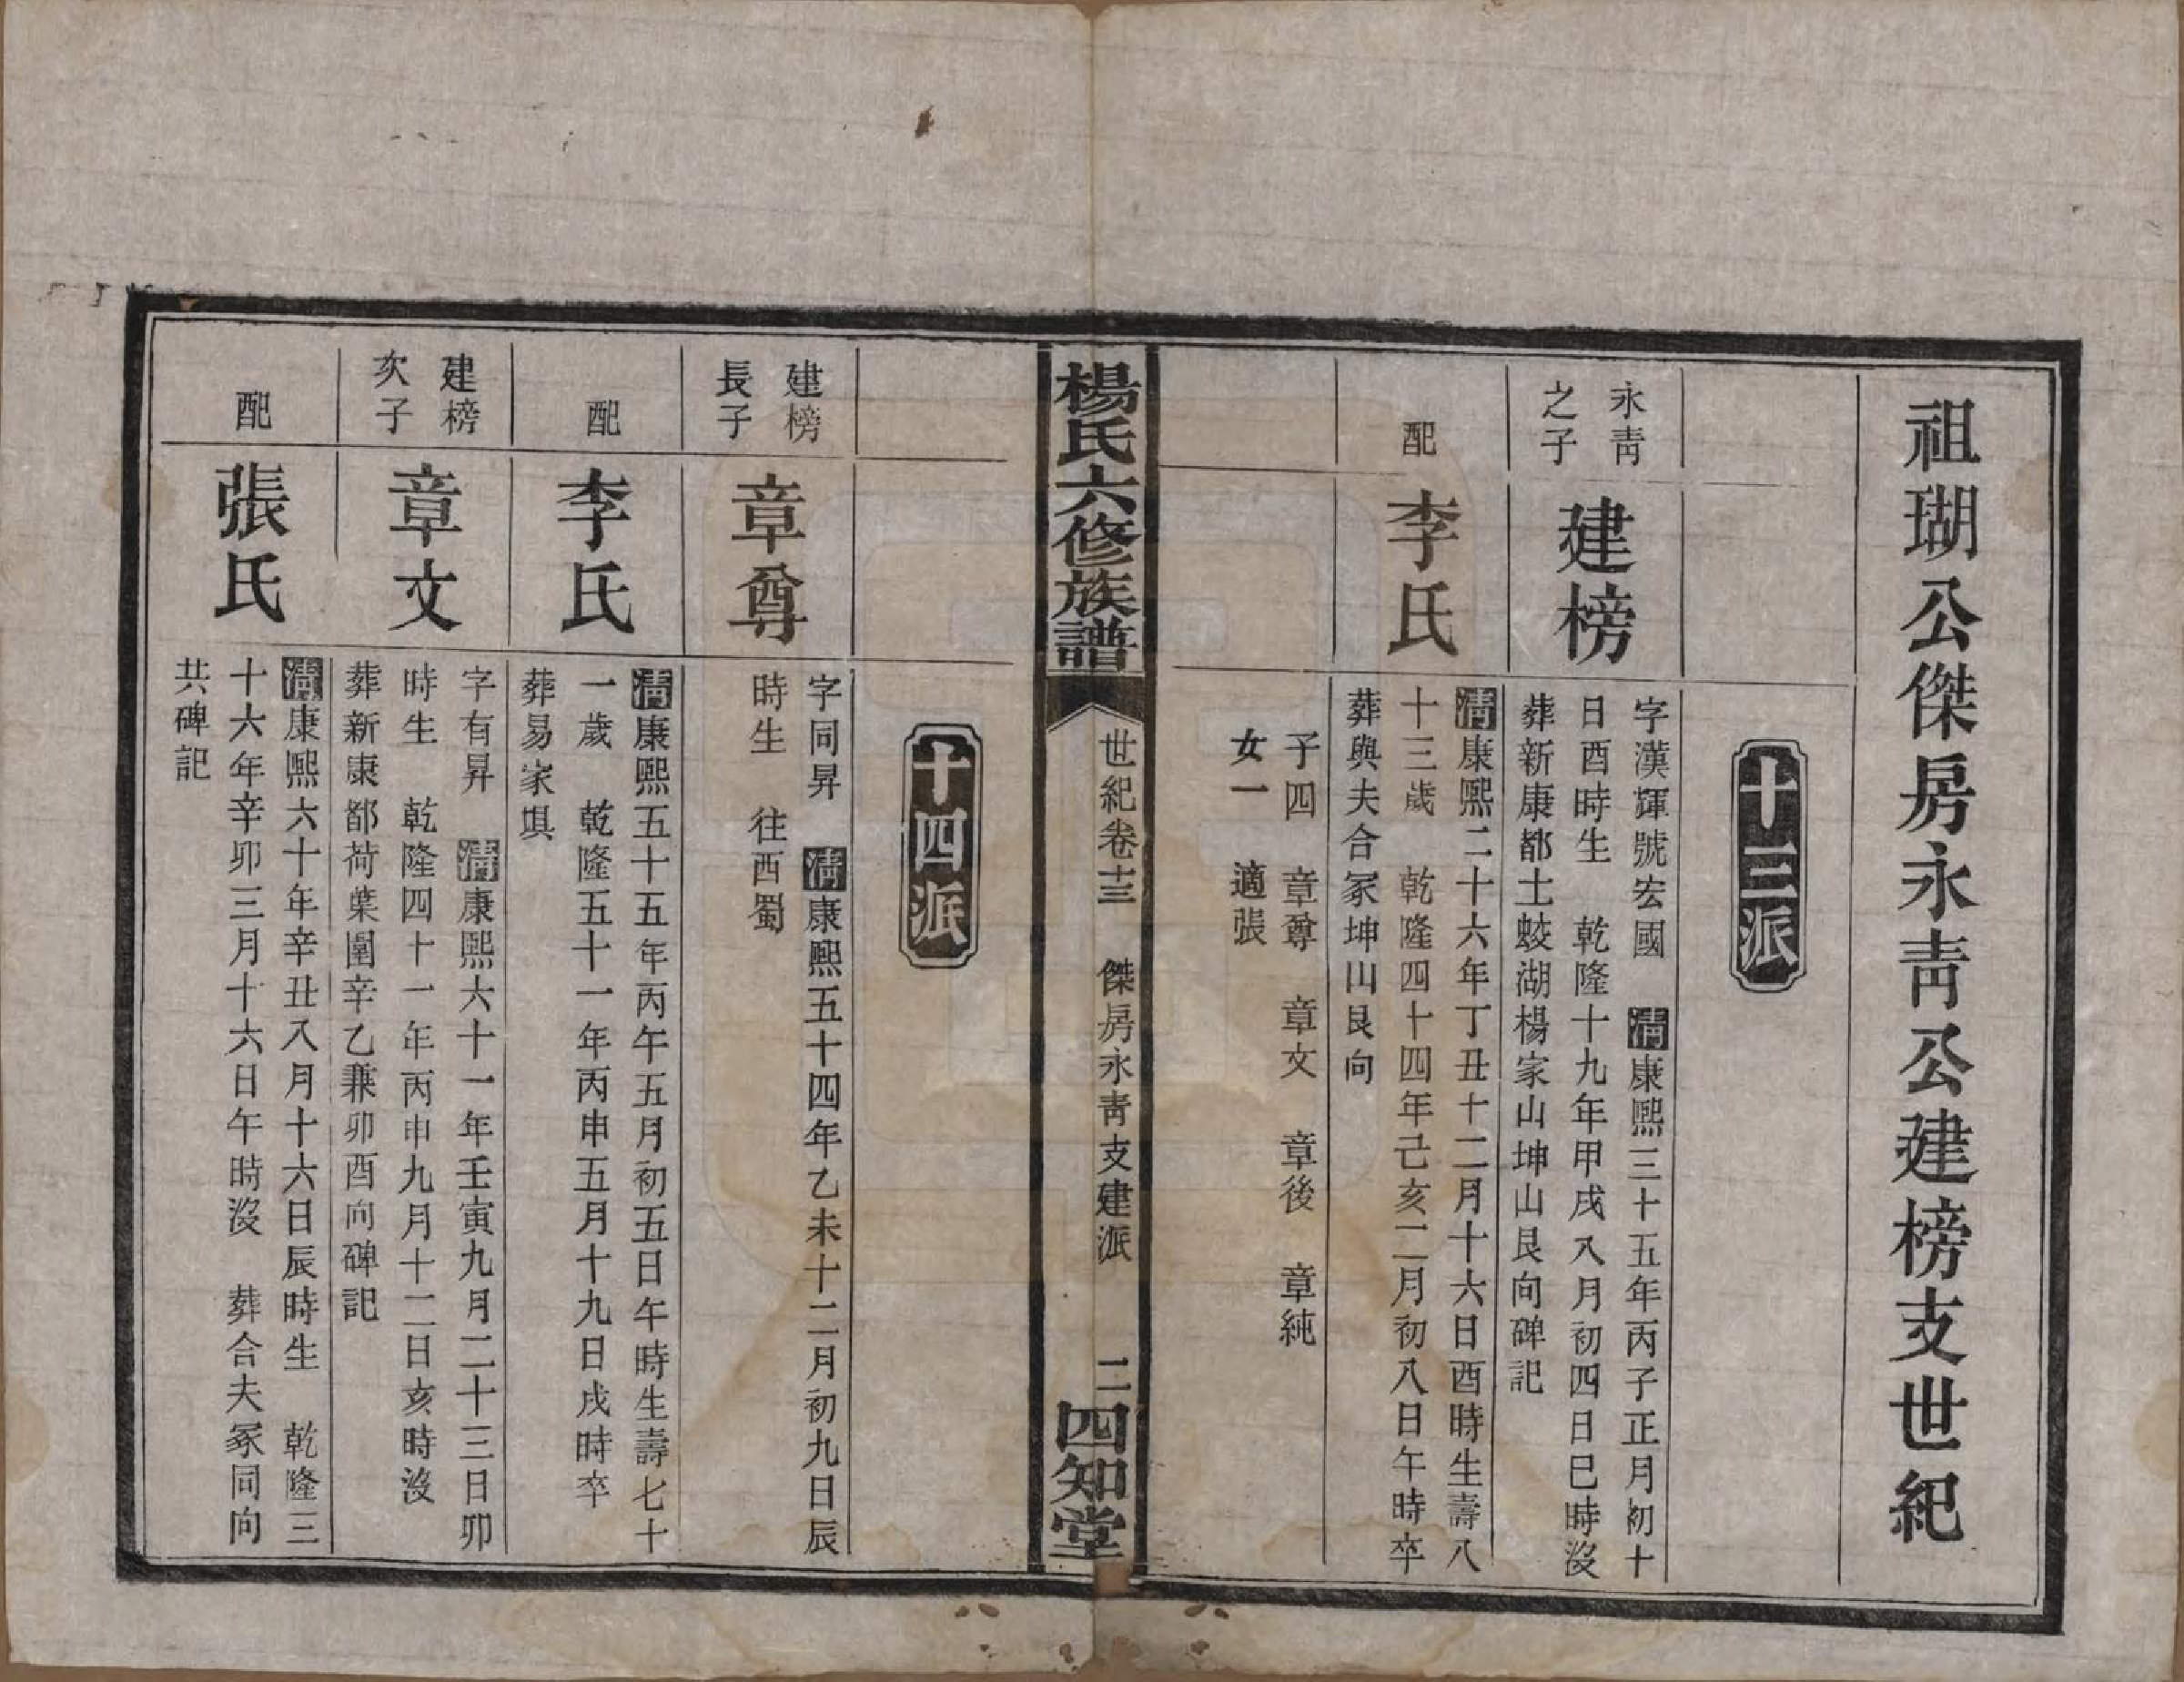 祖瑚公傑房永青公建榜支世紀
十三派
永青
之子
建榜
字漢輝號宏國　清康熙三十五年丙子正月初十
日酉時生　乾隆十九年甲戌八月初四日巳時沒
葬新康都土蛟湖楊家山坤山艮向碑記
配
李氏
清康熙二十六年丁丑十二月十六日酉時生壽八
十三歲　乾隆四十四年己亥二月初八日午時卒
葬與夫合冢坤山艮向
子四　章尊　章文　章後　章純
女一　適張
楊氏六修族譜
世紀卷十三　傑房永青支建派　二
四知堂
十四派
建榜
長子
章尊
字同昇　清康熙五十四年乙未十二月初九日辰
時生　往西蜀
配
李氏
清康熙五十五年丙午五月初五日午時生壽七十
一歲　乾隆五十一年丙申五月十九日戌時卒
葬易家坥
建榜
次子
章文
字有昇　清康熙六十一年壬寅九月二十三日卯
時生　乾隆四十一年丙申九月十二日亥時沒
葬新康都荷葉圍辛乙兼卯酉向碑記
配
張氏
清康熙六十年辛丑八月十六日辰時生　乾隆三
十六年辛卯三月十六日午時沒　葬合夫冢同向
共碑記